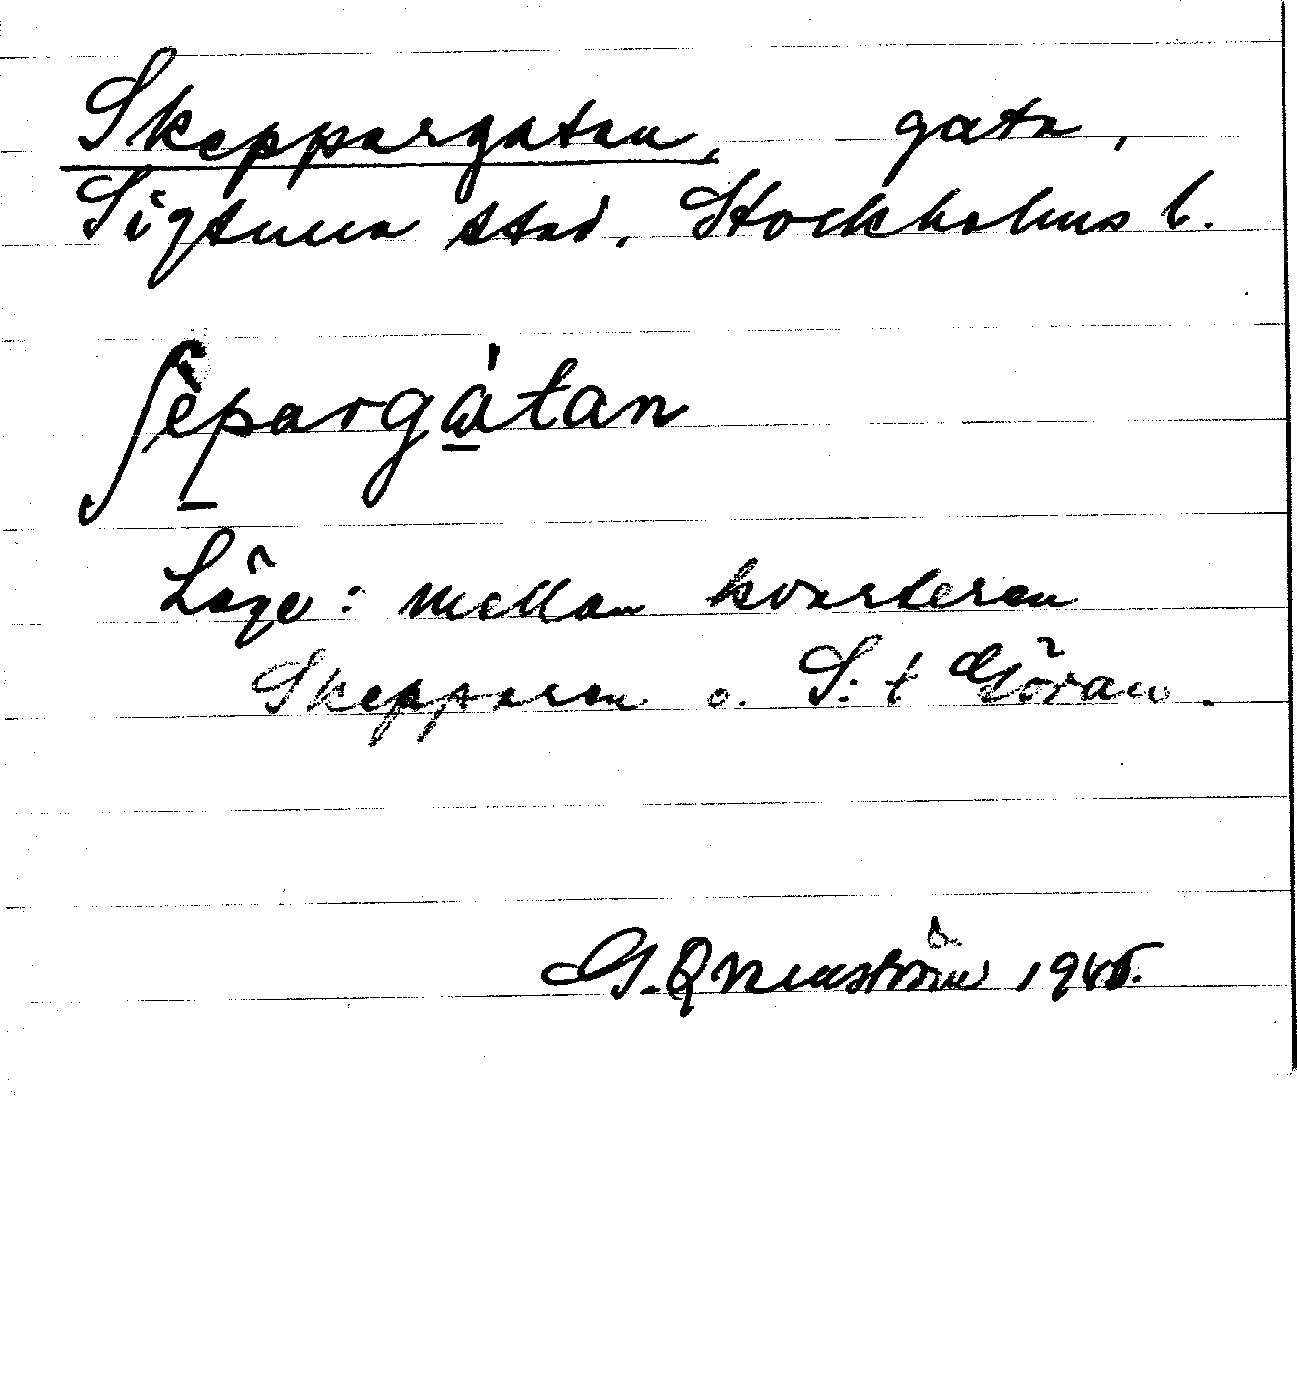 Skeppargatan, gata,
Sigtuna stad, Stockholms l.
ʃèpargátan
Läge: mellan kvarteren
Skepparen o. S:t Göran.
G. 1945.